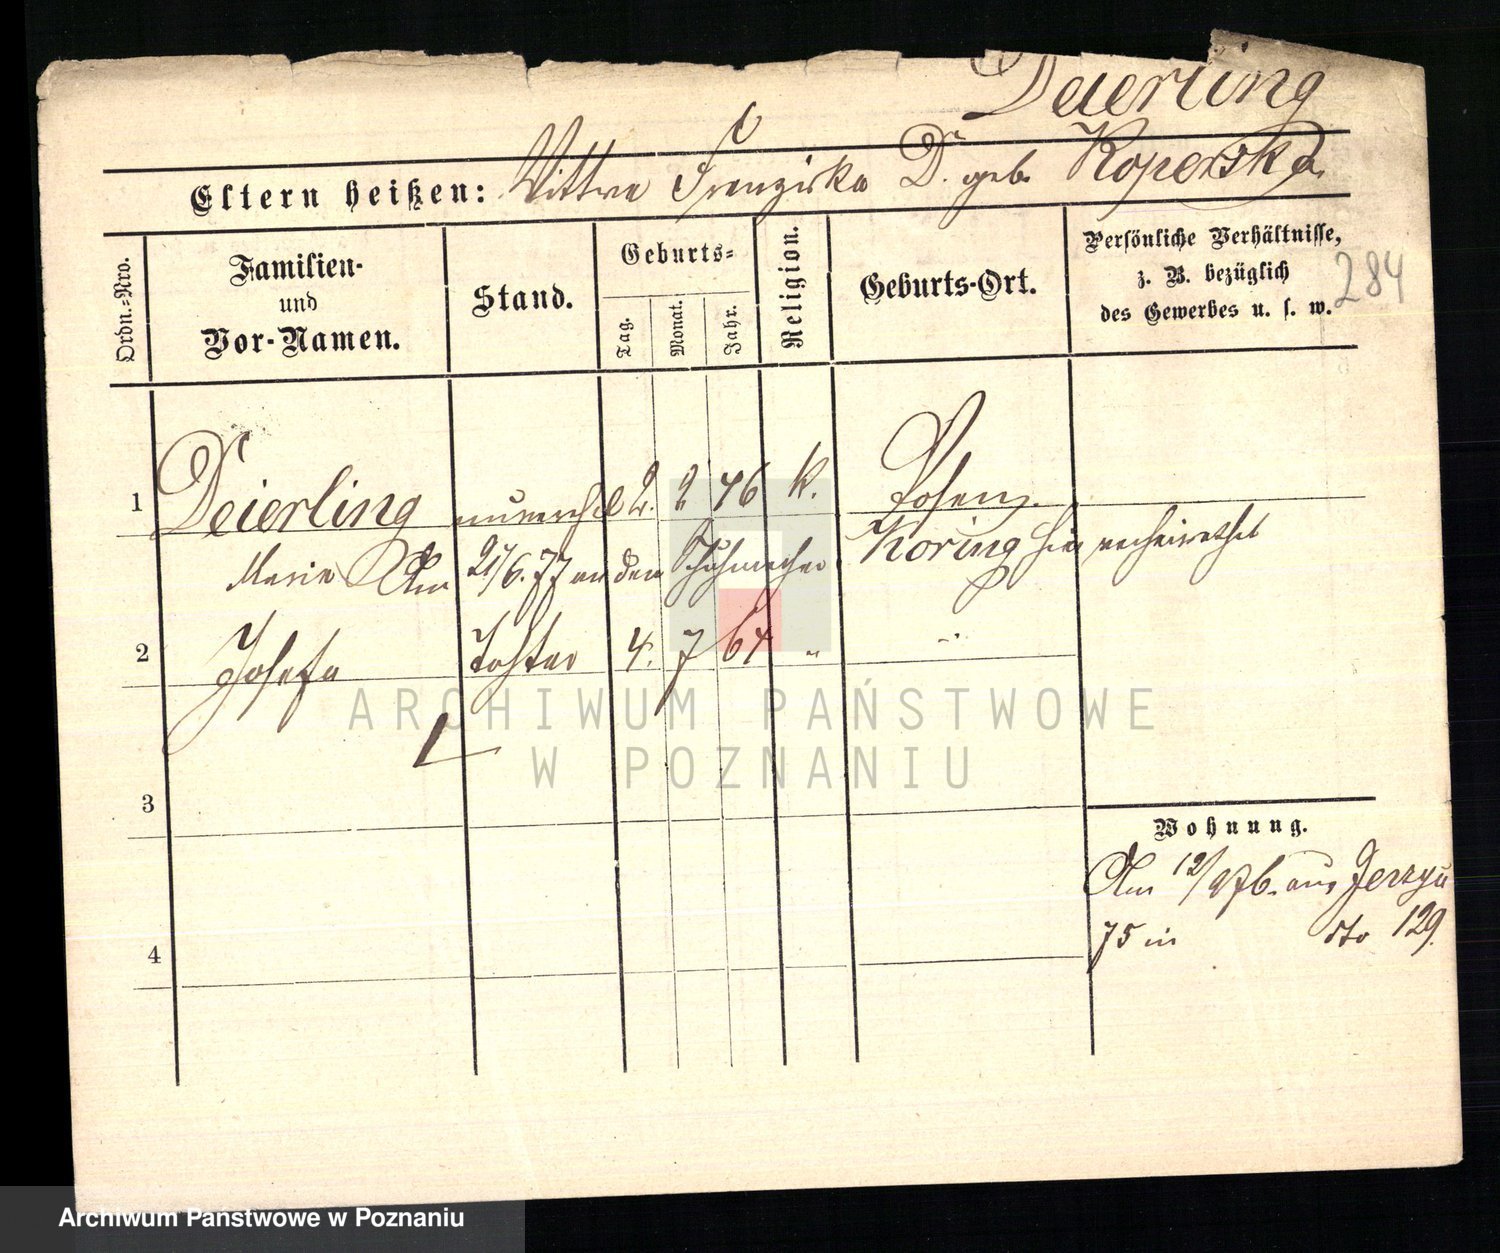 Deierling
Eltern heißen: Wittwe Franziska D. geb. Koperska
284
Ordn.-Nro.
Familien-
und
Vor-Namen.
Stand.
Geburts-
Tag.
Monat.
Jahr.
Religion.
Geburts-Ort.
Persönliche Verhältnisse,
z. B. bezüglich
des Gewerbes u. s. w.
1 Deierling unverehel 2. 2 46 k. Posen.
Marie Am 21/6. 77 an den Schuhmacher Koring hier verheirathet
2 Josefa Tochter 4. 7 64 " "
3
4
Wohnung.
Am 12/9 76. aus Jerzyce
75 in dto 129.
ARCHIWUM PAŃSTWOWE
W POZNANIU
Archiwum Państwowe w Poznaniu